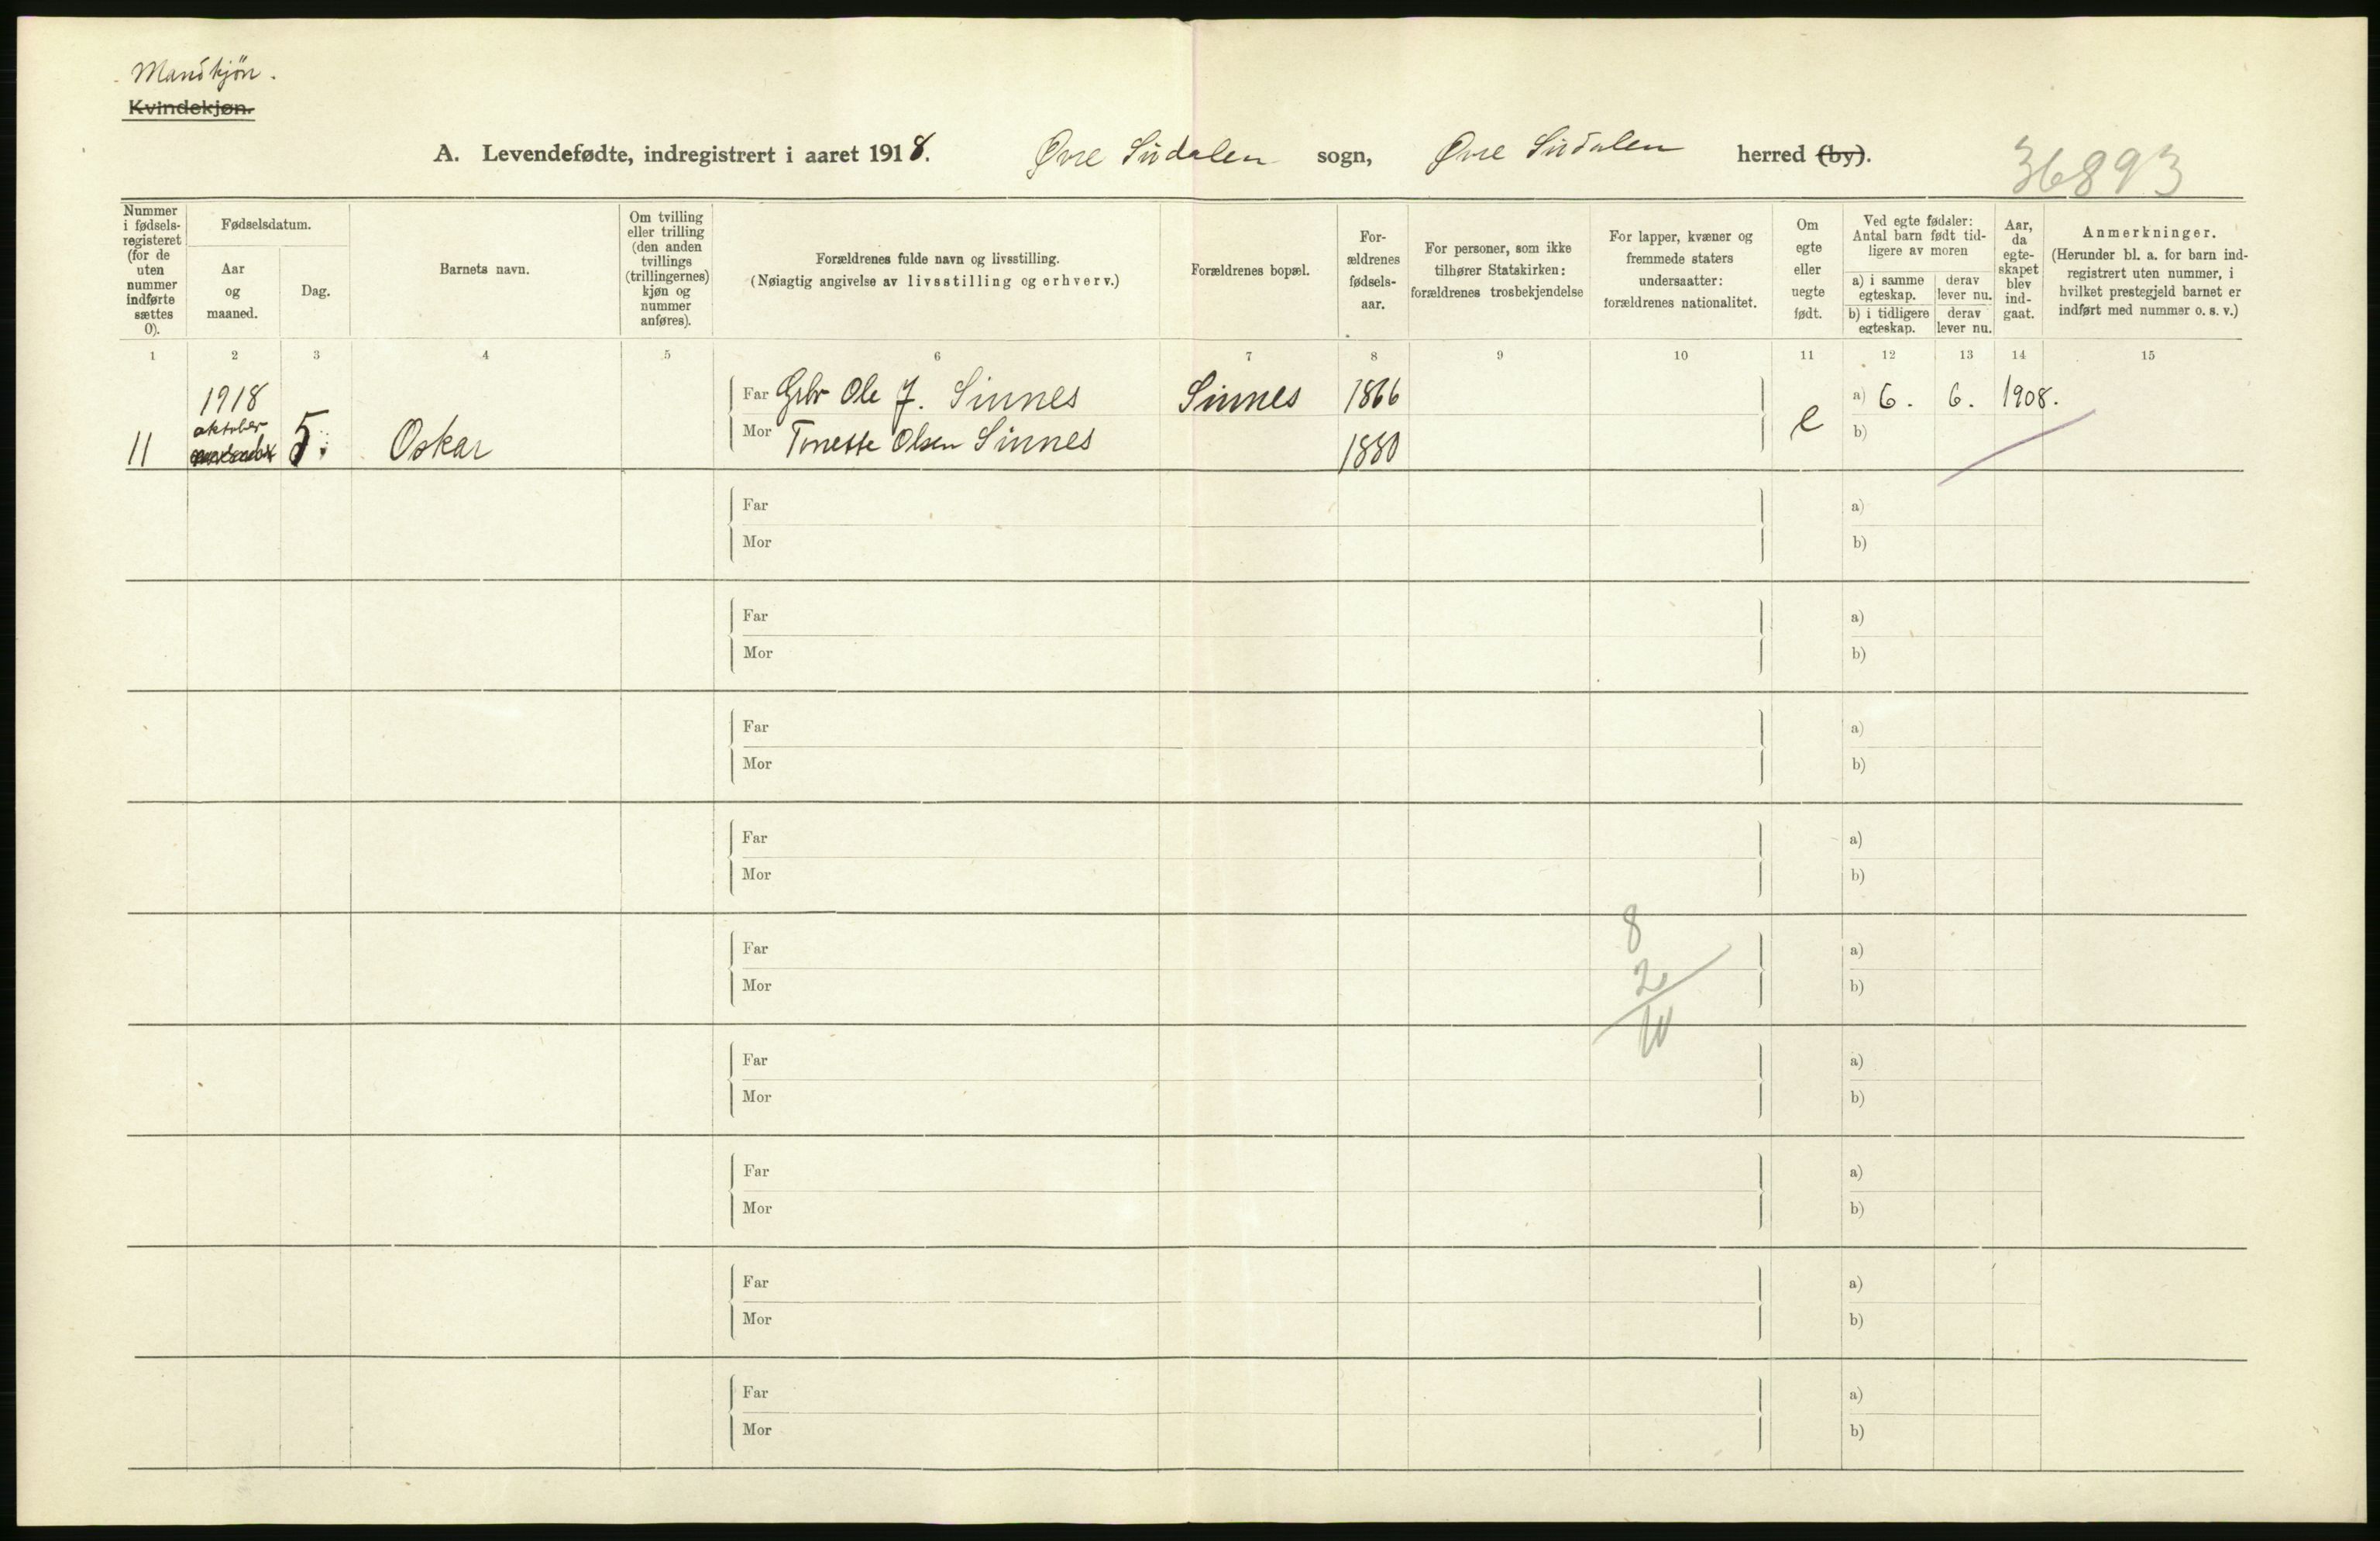 Mandkjøn.
Kvindekjøn.
A. Levendefødte, indregistrert i aaret 1918. Øvre Sirdalen sogn, Øvre Sirdalen herred (by).
36893
Nummer i fødselsregisteret (for de uten nummer indførte sættes 0).
Fødselsdatum.
Aar og maaned.
Dag.
Barnets navn.
Om tvilling eller trilling (den anden tvillings (trillingernes) kjøn og nummer anføres).
Forældrenes fulde navn og livsstilling.
(Nøiagtig angivelse av livsstilling og erhverv.)
Forældrenes bopæl.
Forældrenes fødselsaar.
For personer, som ikke tilhører Statskirken: forældrenes trosbekjendelse
For lapper, kvæner og fremmede staters undersaatter: forældrenes nationalitet.
Om egte eller uegte født.
Ved egte fødsler: Antal barn født tidligere av moren
a) i samme egteskap. derav lever nu.
b) i tidligere egteskap. derav lever nu.
Aar, da egteskapet blev indgaat.
Anmerkninger.
(Herunder bl. a. for barn indregistrert uten nummer, i hvilket prestegjeld barnet er indført med nummer o. s. v.)
1 2 3 4 5 6 7 8 9 10 11 12 13 14 15
1918
Far Gbr Ole J. Sinnes Sinnes 1866 a) 6. 6. 1908.
oktober
11 5. Oskar Mor Tonette Olsen Sinnes 1880 e b)
Far a)
Mor b)
Far a)
Mor b)
Far a)
Mor b)
Far a)
Mor b)
8
Far a)
2
Mor b)
10
Far a)
Mor b)
Far a)
Mor b)
Far a)
Mor b)
Far a)
Mor b)